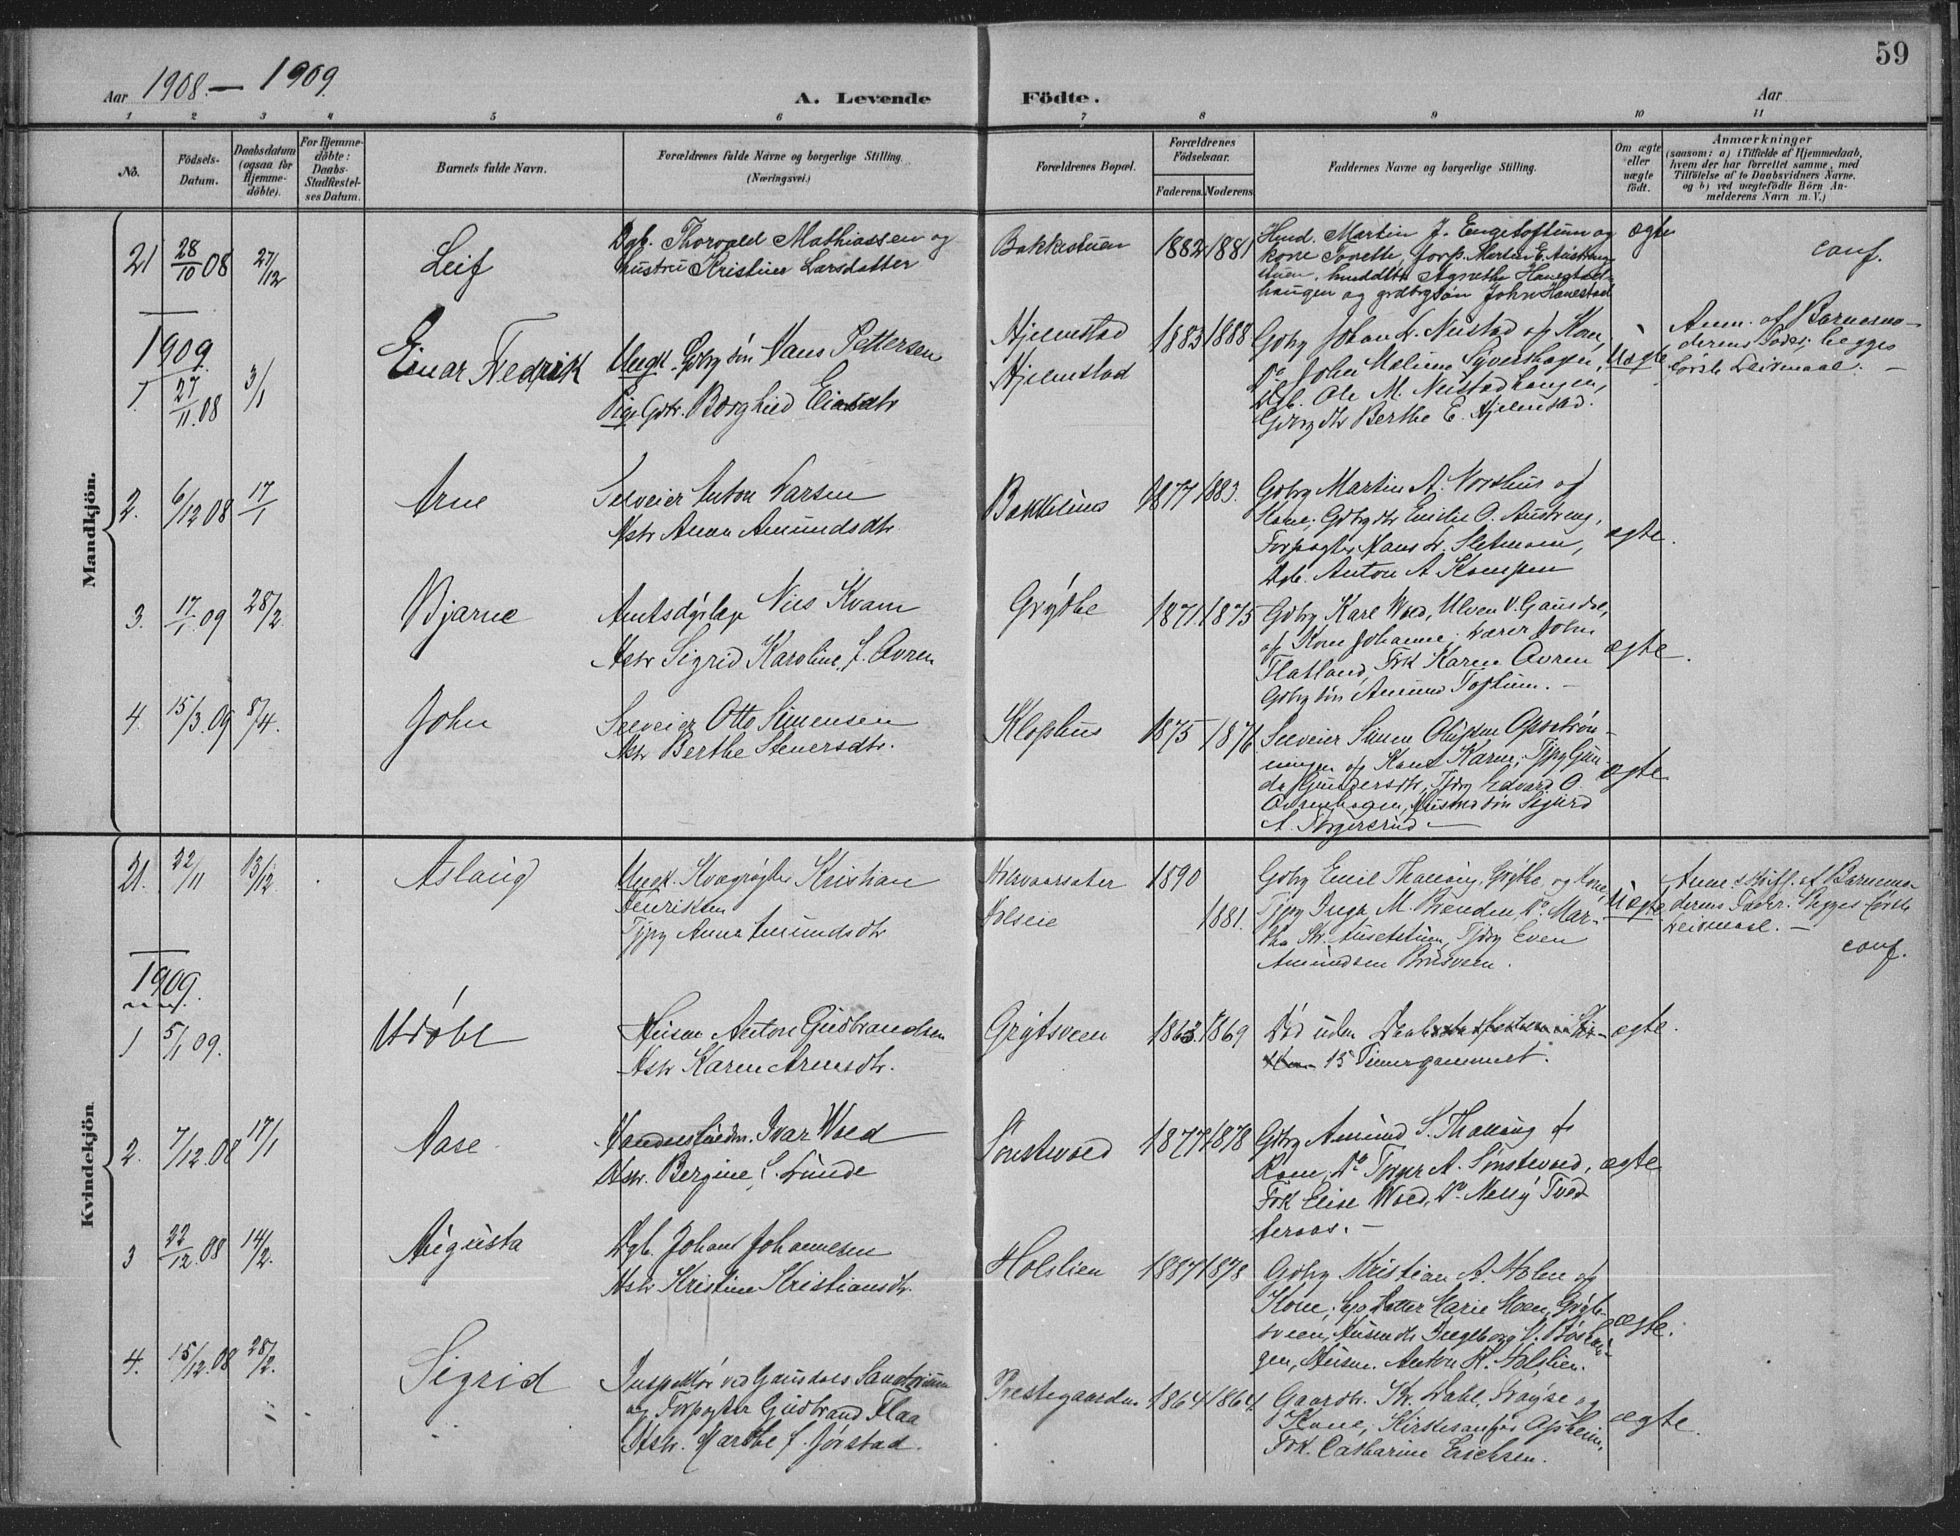 59
Aar 1908. — 1909.
A. Levende Födte.
Aar
1 2 3 4 5 6 7 8 9 10 11
No.
Födsels-
Datum.
Daabsdatum
(ogsaa for
Hjemme-
döbte).
For Hjemme-
döbte:
Daabs-
Stadfæstel-
ses Datum.
Barnets fulde Navn.
Forældrenes fulde Navne og borgerlige Stilling
(Næringsvei.)
Forældrenes Bopæl.
Forældrenes
Födselsaar.
Faderens. Moderens.
Faddernes Navne og borgerlige Stilling.
Om ægte
eller
uægte
födt.
Anmærkninger
(saasom: a) i Tilfælde af Hjemmedaab,
hvem der har forrettet samme, med
Tilföielse af to Daabsvidners Navne.
og b) ved uægtefödte Börn An-
melderens Navn m. V.)
Mandkjön.
21 28/10 08 27/12 Leif
Dgb. Thorvald Mathiassen og
hustru Kristine Larsdatter
Bakkestuen 1882 1881
Husd. Martin J. Engestoftum og
kone
haugen og grdbrgsön John Hanestad
ægte
conf.
1909.
1. 27/11.08 3/1 Einar Fredrik
Ungk. Gdbg sön Hans Pettersen
Pige Gdtr. Borghild Einarsdtr
Hjelmstad
Hjelmstad
1883 1888
Gdbg Johan L. Neistad og Kone,
Do John
Dgb. Ole M. Neistadhaugen,
Gdbrg dtr Berthe E. Hjelmstad.
Uægte
Anm. af Barnemo-
derens Fader, begges
förste Leiermaal. —
2. 6/12 08 17/1 Arne
Selveier Anton Larsen
Hstr Anna Amundsdtr.
Bakkelius 1877 1883.
Gdbrg Martin A. Nordhus og
Kone, Gdbrgdtr Emilie O. Austeng,
Forpagter Hans L. Sletmoen,
Dgb. Anton A. Kampen
ægte.
3. 17/1.09 28/2. Bjarne
Amtsdyrlæge Nils Kvam
Hstr Sigrid Karoline, f. Avren
Grythe 1871. 1875
Gdbrg Karl Woed, Ulven V. Gausdal,
og Kone Johanne; Lærer John
Flatland, Frk Karen Avren
Gdbrg sön Amund Toftum. —
ægte.
4. 15/3.09 8/4. John
Selveier Otto Simensen
Hstr Berthe Stenersdtr.
Klophus 1875 1876
Selveier Simen Olufsen Opsetrön-
ningen og Kone Karen, Tjpg Gun-
da Gundersdtr, Tjdrg Edvard O.
sön Sigurd
A. Torgersrud —
ægte
Kvindekjön
21. 22/11 13/12 Aslaug
Ungk. Kvægrögter Kristian
Henriksen
Tjpg Anna Amundsdtr
Holsveie
1890
1881.
Gdbrg Emil Thallaug, Grythe, og Kone,
Tjpg Inga M. Brænden, Do Mar-
Tjdrg Even
Amundsen Brusveen.
Uægte
af Barnemo-
derens Fader. Begges förste
Leiermaal. —
conf.
1909.
1 5/1 09. Udöbt
Husm Anton Gudbrandsen
Hstr Karen Arnesdtr.
Grytsveen 1863. 1869
Död uden Daab
15 Timer gammel.
ægte.
2. 7/12.08 17/1 Aase
Ivar Woed
Hstr. Bergine, f. Lunde
Sönstevoed 1877 1878
Gdbrg Amund S. Thallaug og
Kone, Do Torger A. Sönstevoed,
Frk Elise Woed, Do Nelly Tved
teraas. —
ægte
3 22/12.08 14/2. Augusta
Dgb. Johan Johannesen
Hstr Kristine Kristiansdtr.
Holslien 1887 1878
Gdbrg Kristian A. Holen og
Kone, Marie Moen, Gryts-
veen, Husmdtr Ingeborg
gen, Husm. Anton K. Holslien.
ægte.
4. 15/12.08 28/2. Sigrid
Inspektör ved Gausdals Sanatorium
og Forpagter Gudbrand Flaa
Hstr. Marthe f. Jörstad.
Prestegaarden 1864 1864
Gaardbr. Kr. Dahl, Fröyse og
Kone, Kirkesanger Opheim,
Frk. Catharine Erichsen.
ægte.